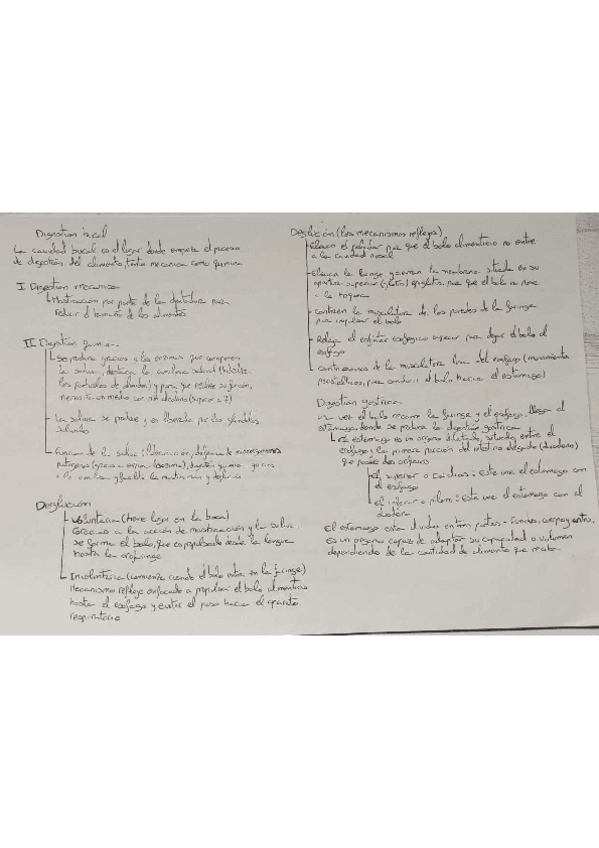 Digestion bucal
La cavidad bucal es el lugar donde empieza el proceso
de digestión del alimento, tanto mecanica como quimica
I Digestion mecanica
Masticación por parte de la dentadura para
reducir el tamaño de los alimentos
II Digestion quimica
Se produce gracias a las enzimas que componen
la saliva, destaca la amilasa salival (hidroliza
las particulas de almidon) y para que realice su función,
necesita un medio con pH alcalino (superior a 7)
La saliva se produce y es liberada por las glándulas
salivales
Funciones de la saliva: lubricación, defensa de microorganismos
patogenos (gracias a enzima lisozima), digestión quimica gracias
a la amilasa y facilita la masticación y deglución
Deglución
Voluntaria (tiene lugar en la boca)
Gracias a la acción de masticación y la saliva
se forma el bolo, que es propulsado desde la lengua
hasta la orofaringe
Involuntaria (comienza cuando el bolo entra en la faringe)
Mecanismo reflejo enfocado a propulsar el bolo alimenticio
hasta el esofago y evitar el paso hacia el aparato
respiratorio
Deglución (los mecanismos reflejos)
Elevan el paladar para que el bolo alimenticio no entre
a la cavidad nasal
Eleva la laringe y cierran la membrana situada en su
apertura superior (glotis) epiglotis, para que el bolo no pase
a la traquea
contraen la musculatura de las paredes de la faringe
para impulsar el bolo
Relaja el esfinter esofagico superior para dejar el bolo al
esofago
contracciones de la musculatura lisa del esofago (movimientos
peristalticos, para conducir el bolo hacia el estomago)
Digestión gastrica
una vez el bolo recorre la faringe y el esofago, llega al
estomago donde se produce la digestión gastrica
El estomago es un organo dilatado, situado entre el
esofago y la primera porción del intestino delgado (duodeno)
que posee dos orificios
El superior o Cardias: Este une el estomago con
el esofago
el inferior o piloro: Este une el estomago con el
duodeno
El estomago esta dividido en tres partes: Fundus, cuerpo y antro,
es un organo capaz de adaptar su capacidad o volumen
dependiendo de la cantidad de alimento que